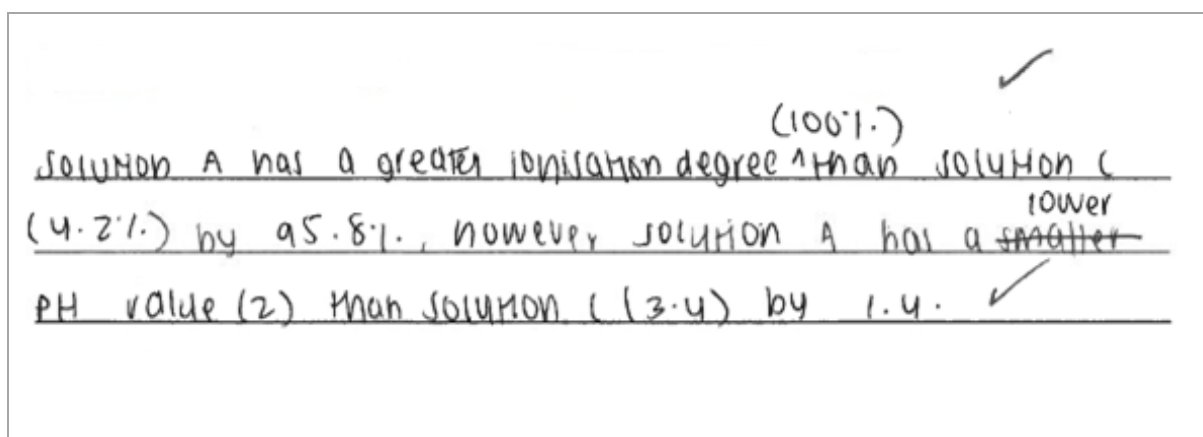 (100%)
solution A has a greater ionisation degree ^ than solution C
lower
(4.2%) by 95.8%, however solution A has a smaller
pH value (2) than solution C (3.4) by 1.4.